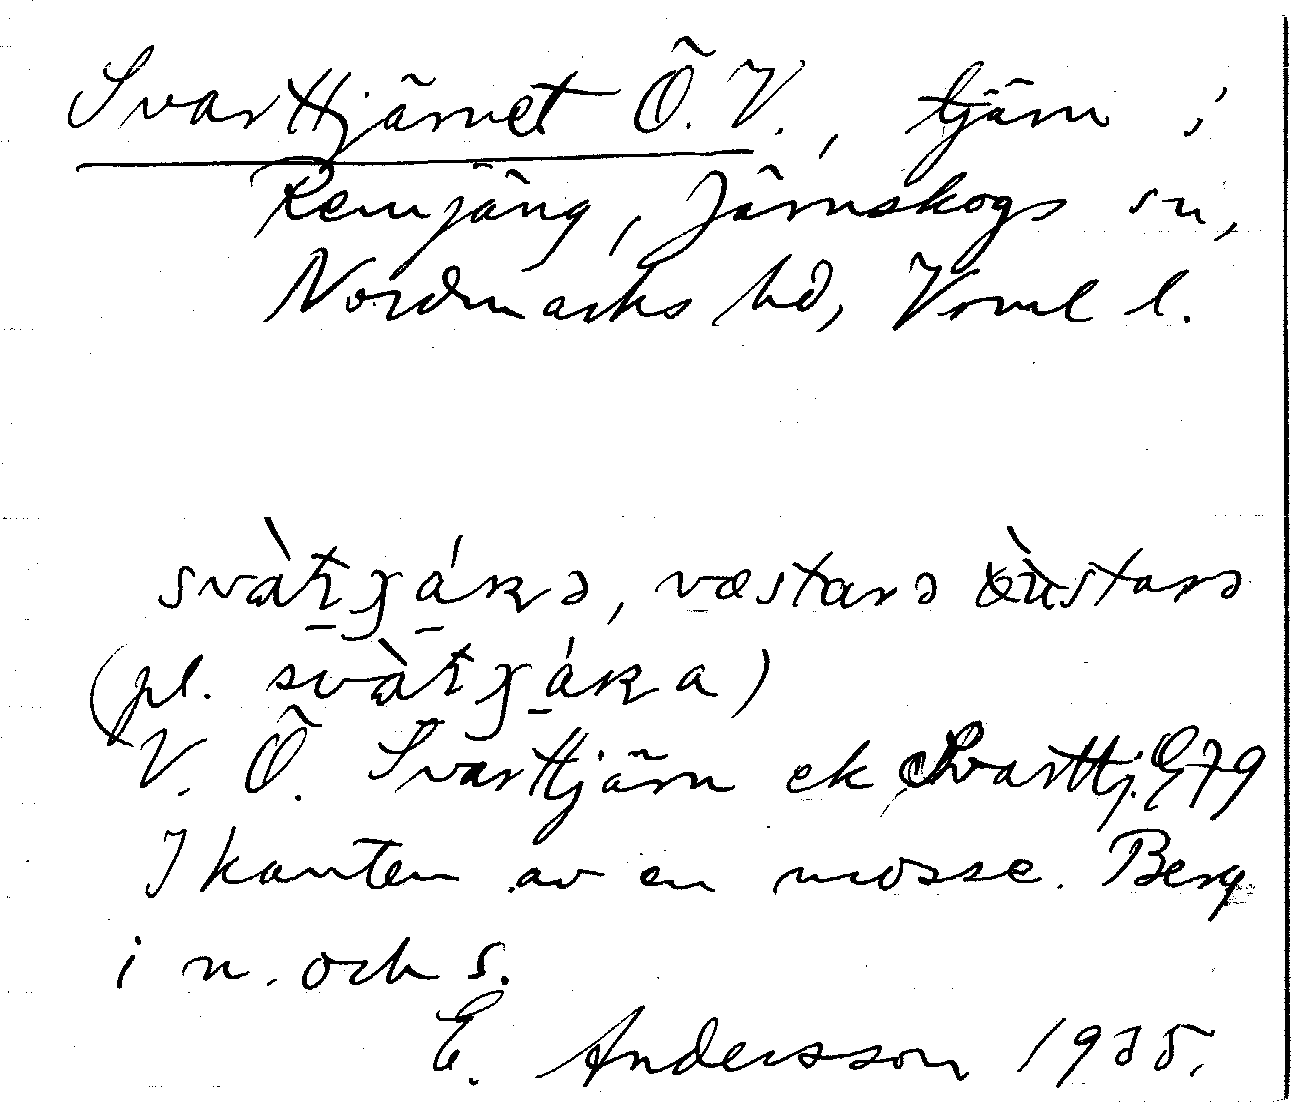 Svarttjärnet Ö. V., tjärn i
Remjäng, Järnskogs sn,
Nordmarks hd, Vrml l.
svàtʒáʀə, væstarə ùstarə
(pl. svàtʒáʀa)
V. Ö. Svarttjärn ek Svarttj. E79
I kanten av en mosse. Berg
i n. och s.
E. Andersson 1935.